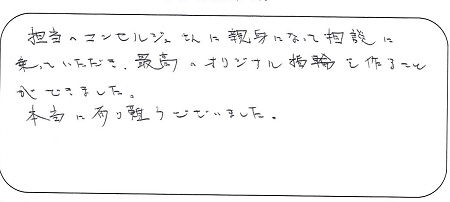 担当のコンセルジュさんに親身になって相談に
乗っていただき、最高のオリジナル指輪を作ること
ができました。
本当に有り難うございました。